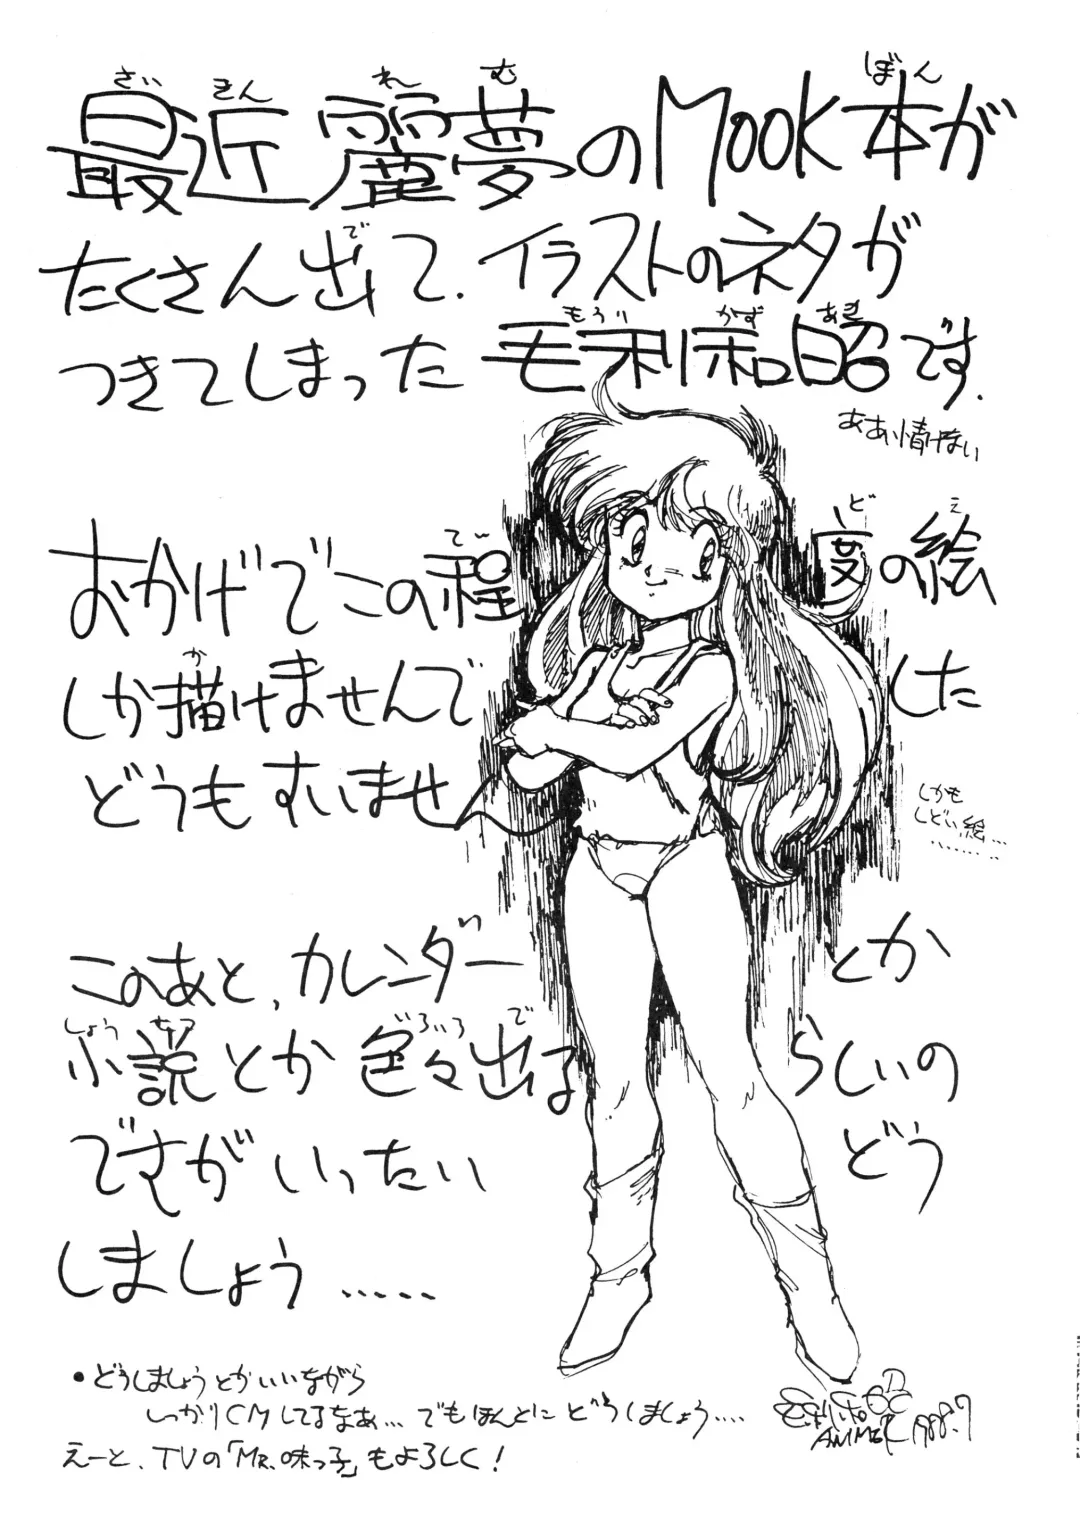 最近麗夢のMook本が
ざい きん れ む ぼん
たくさん出て、イラストのネタが
で
つきてしまった毛利和昭です.
もうり かず あき
ああ、情けない
おかげでこの程度の絵
で ど え
しか描けませんでした
か
どうもすいませ
しかも
しどい絵...
.........
このあと、カレンダーとか
小説とか色々出るらしいの
しょう せつ いろいろ で
ですがいったいどう
しましょう.....
・どうしましょうとかいいながら
しっかりCMしてるなあ...でもほんとにどうしましょう....
えーと、TVの「Mr.味っ子」もよろしく!
ANIMER 1988.7